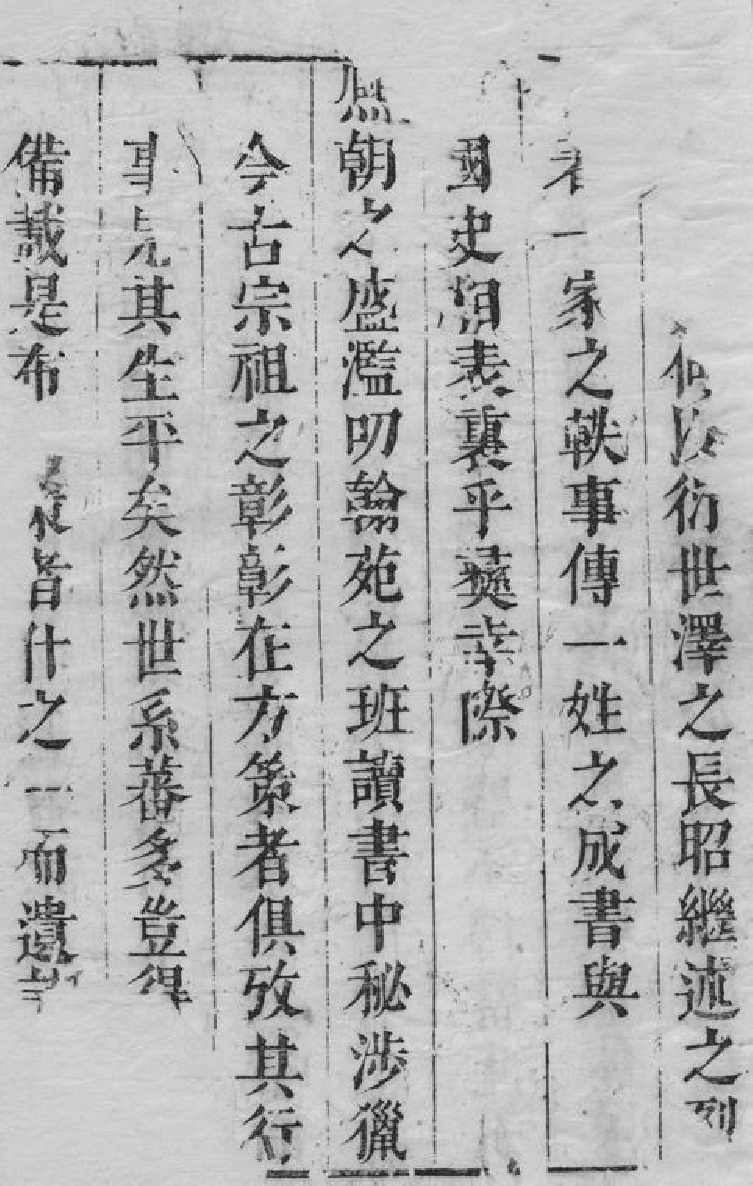 衍世澤之長昭繼述之
一家之軼事傳一姓之成書與
國史相表裏乎彝幸際
熙朝之盛濫叨翰苑之班讀書中秘涉獵
今古宗祖之彰彰在方策者俱攷其行
事見其生平矣然世系蕃多豈得
備載是布者什之一而遺